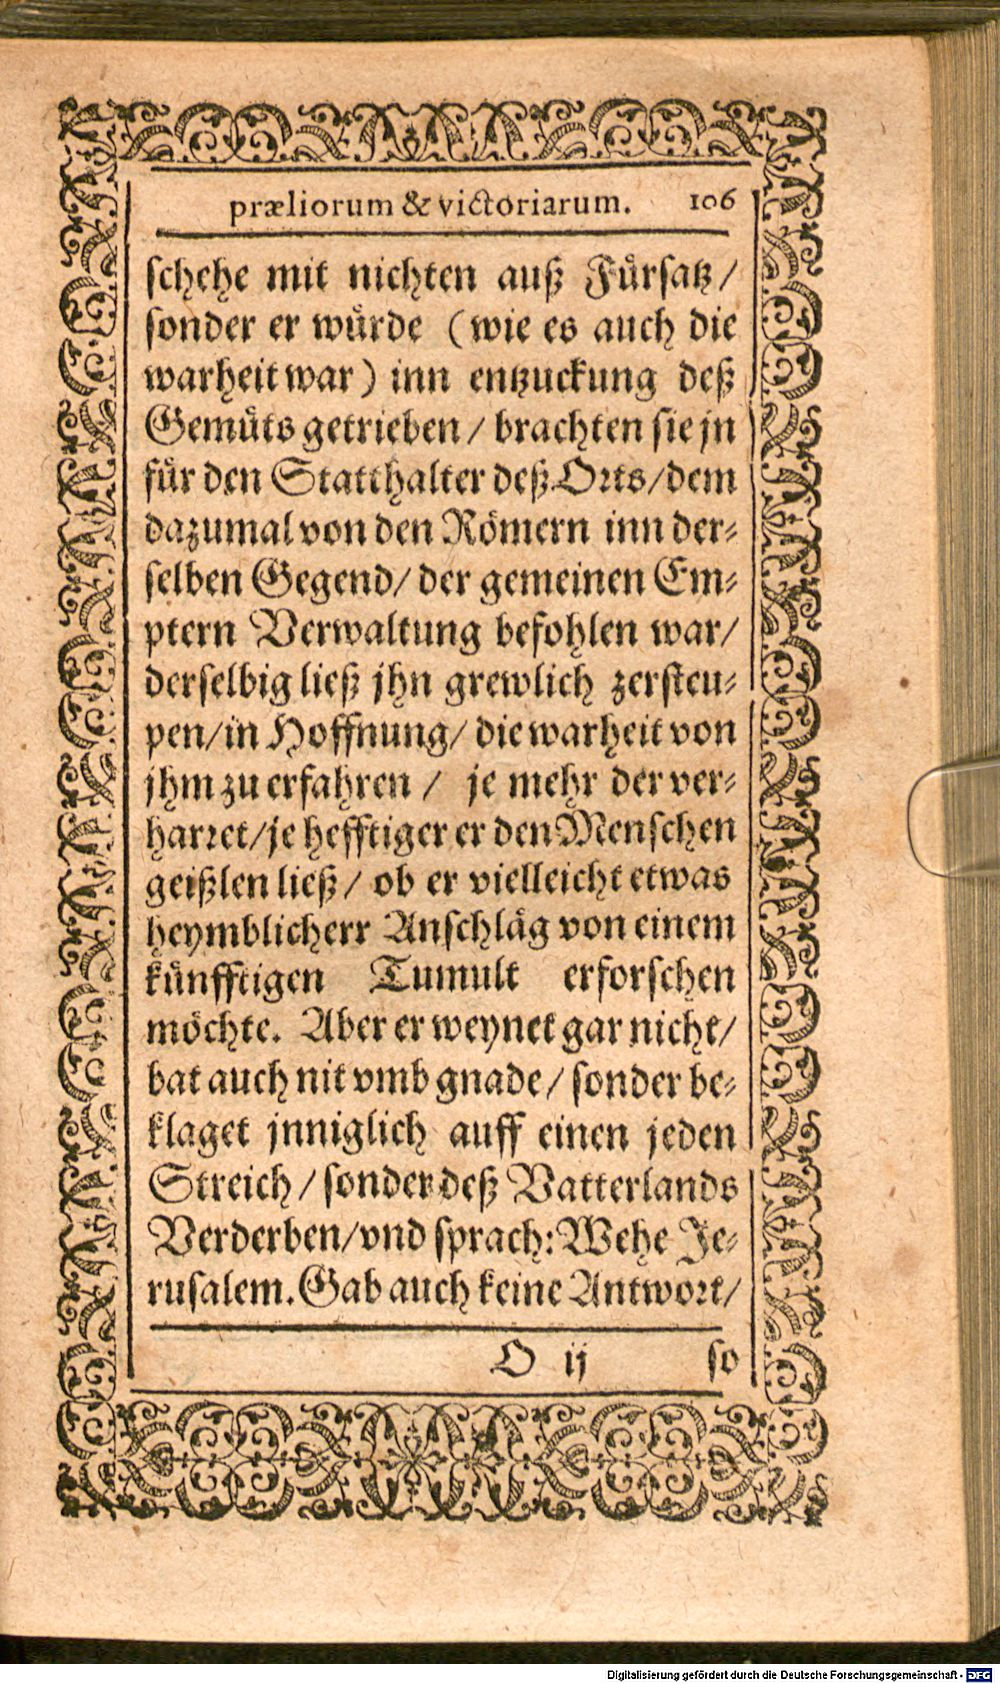 præliorum & victoriarum. 106
schehe mit nichten auß Fürsatz/
sonder er würde (wie es auch die
warheit war) inn entzuckung deß
Gemüts getrieben/ brachten sie jn
für den Statthalter deß Orts/dem
dazumal von den Römern inn der-
selben Gegend/ der gemeinen Em-
ptern Verwaltung befohlen war/
derselbig ließ jhn grewlich zersteu-
pen/in Hoffnung/ die warheit von
jhm zu erfahren / je mehr der ver-
harret/je hefftiger er den Menschen
geißlen ließ/ ob er vielleicht etwas
heymblicherr Anschläg von einem
künfftigen Tumult erforschen
möchte. Aber er weynet gar nicht/
bat auch nit vmb gnade/ sonder be-
klaget jnniglich auff einen jeden
Streich/ sonder deß Vatterlands
Verderben/vnd sprach: Wehe Je-
rusalem. Gab auch keine Antwort/
O ij so
Digitalisierung gefördert durch die Deutsche Forschungsgemeinschaft - DFG